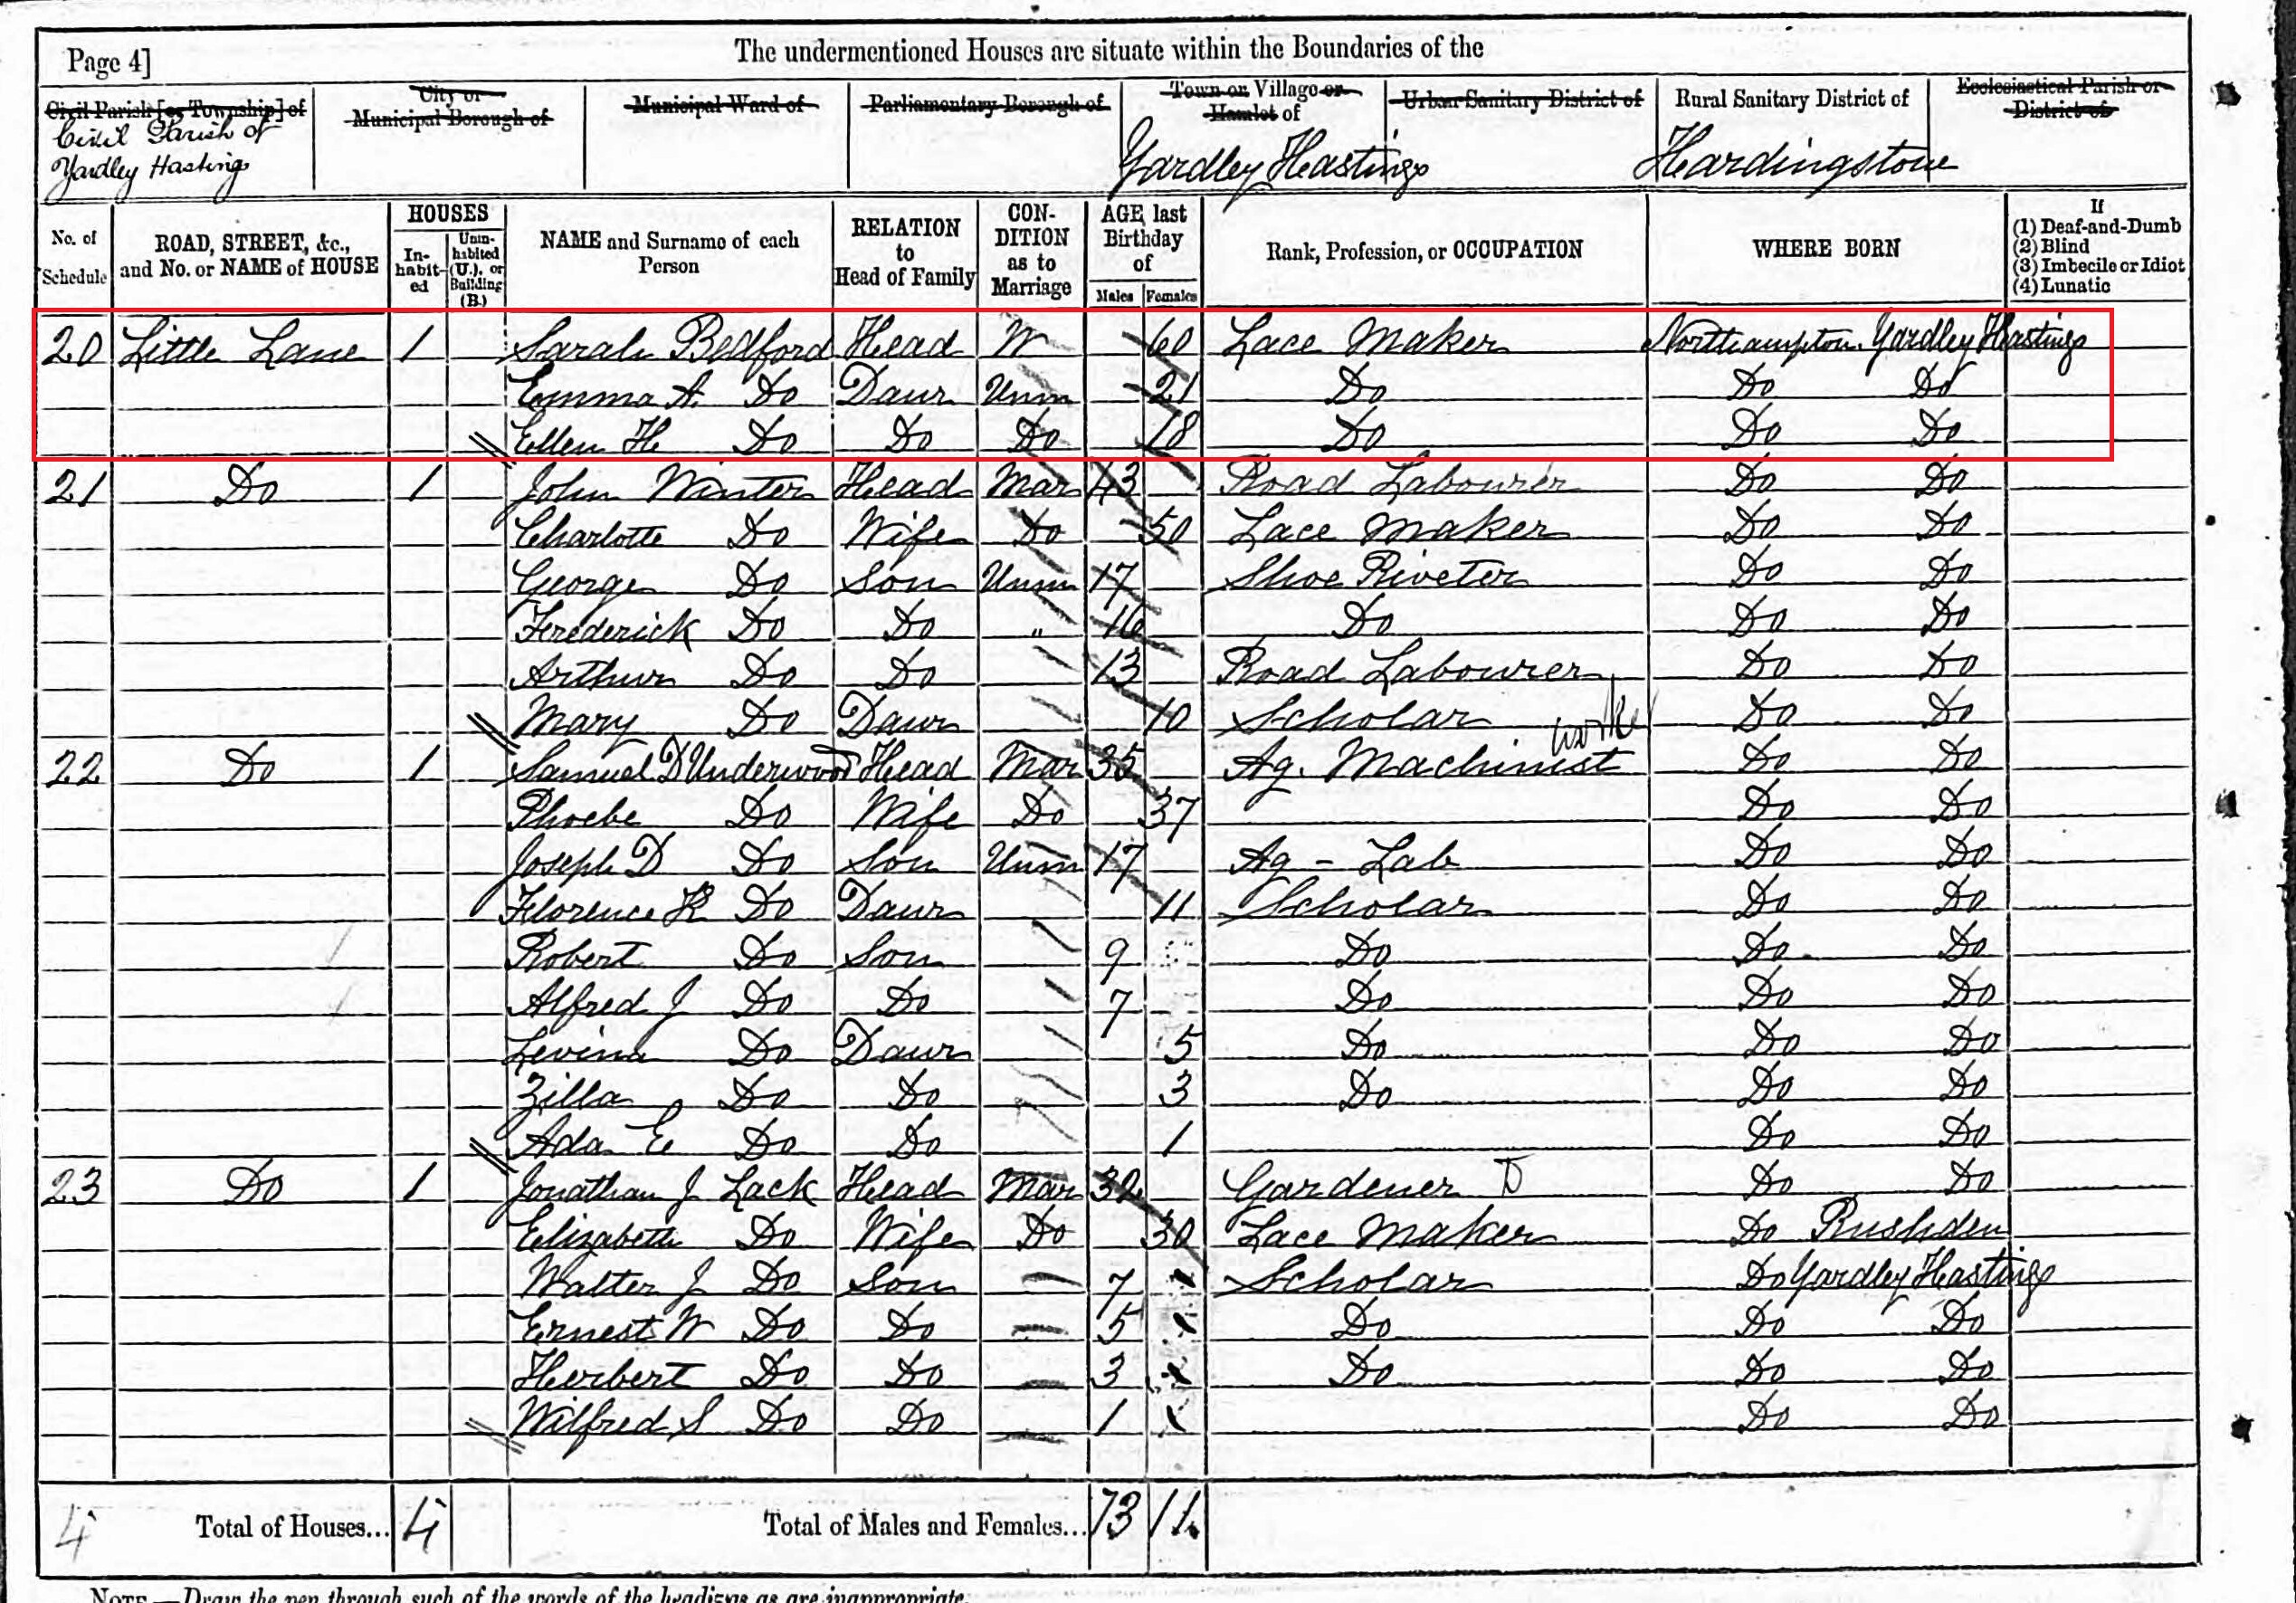 Page 4]
The undermentioned Houses are situate within the Boundaries of the
Civil Parish [or Township] of
City or Municipal Borough of
Municipal Ward of
Parliamentary Borough of
Town or Village or Hamlet of
Urban Sanitary District of
Rural Sanitary District of
Ecclesiastical Parish or District of
Civil Parish of Yardley Hastings
Yardley Hastings
Hardingstone
No. of Schedule
ROAD, STREET, &c., and No. or NAME of HOUSE
HOUSES
In-habit-ed
Unin-habited (U.), or Building (B.)
NAME and Surname of each Person
RELATION to Head of Family
CON-DITION as to Marriage
AGE last Birthday of
Males Females
Rank, Profession, or OCCUPATION
WHERE BORN
If
(1) Deaf-and-Dumb
(2) Blind
(3) Imbecile or Idiot
(4) Lunatic
20 Little Lane 1 Sarah Bedford Head W 60 Lace Maker Northampton Yardley Hastings
Emma A. Do Daur Unm 21 Do Do Do
Ellen H Do Do Do 18 Do Do Do
21 Do 1 John Winter Head Mar 43 Road Labourer Do Do
Charlotte Do Wife Do 50 Lace Maker Do Do
George Do Son Unm 17 Shoe Riveter Do Do
Frederick Do Do " 16 Do Do Do
Arthur Do Do 13 Road Labourer Do Do
Mary Do Daur 10 Scholar Do Do
22 Do 1 Samuel D Underwood Head Mar 35 Ag. Machinist Do Do
Phoebe Do Wife Do 37 Do Do
Joseph D Do Son Unm 17 Ag - Lab Do Do
Florence K Do Daur 11 Scholar Do Do
Robert Do Son 9 Do Do Do
Alfred J Do Do 7 Do Do Do
Levina Do Daur 5 Do Do Do
Zilla Do Do 3 Do Do Do
Ada E Do Do 1 Do Do
23 Do 1 Jonathan J Lack Head Mar Gardener D Do Do
Elizabeth Do Wife Do 30 Lace Maker Do Rushden
Walter J Do Son 7 Scholar Do Yardley Hastings
Ernest W Do Do 5 Do Do Do
Herbert Do Do 3 Do Do Do
Wilfred S Do Do 1 Do Do
4 Total of Houses... 4 Total of Males and Females... 13 11
NOTE.—Draw the pen through such of the words of the headings as are inappropriate.